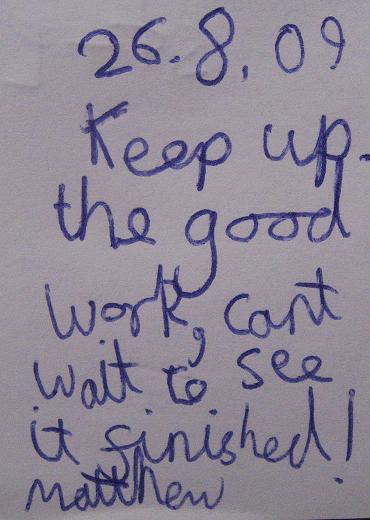 26.8.09
Keep up
the good
work, cant
wait to see
it finished!
matthew